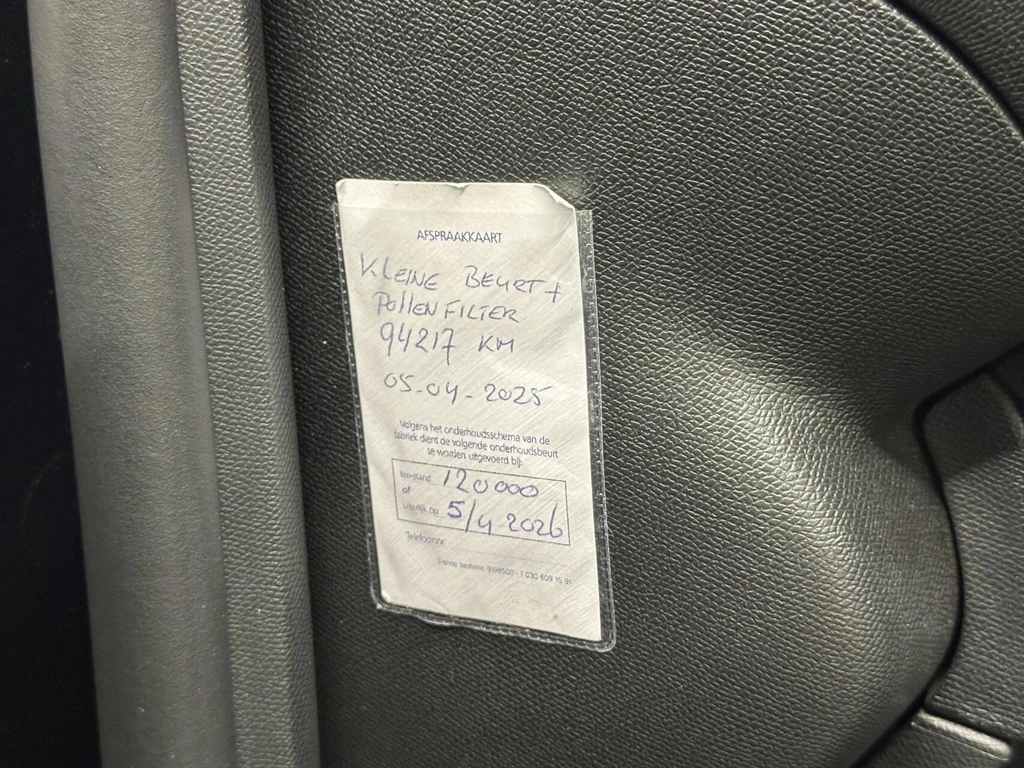 AFSPRAAKKAART
KLEINE BEURT +
POLLENFILTER
94217 KM
05-04-2025
Volgens het onderhoudsschema van de
fabriek dient de volgende onderhoudsbeurt
te worden uitgevoerd bij:
km-stand 120000
of
uiterlijk op 5/4 2026
Telefoonnr.
E-shop bestelnr. 9198500 - T 030 609 15 91